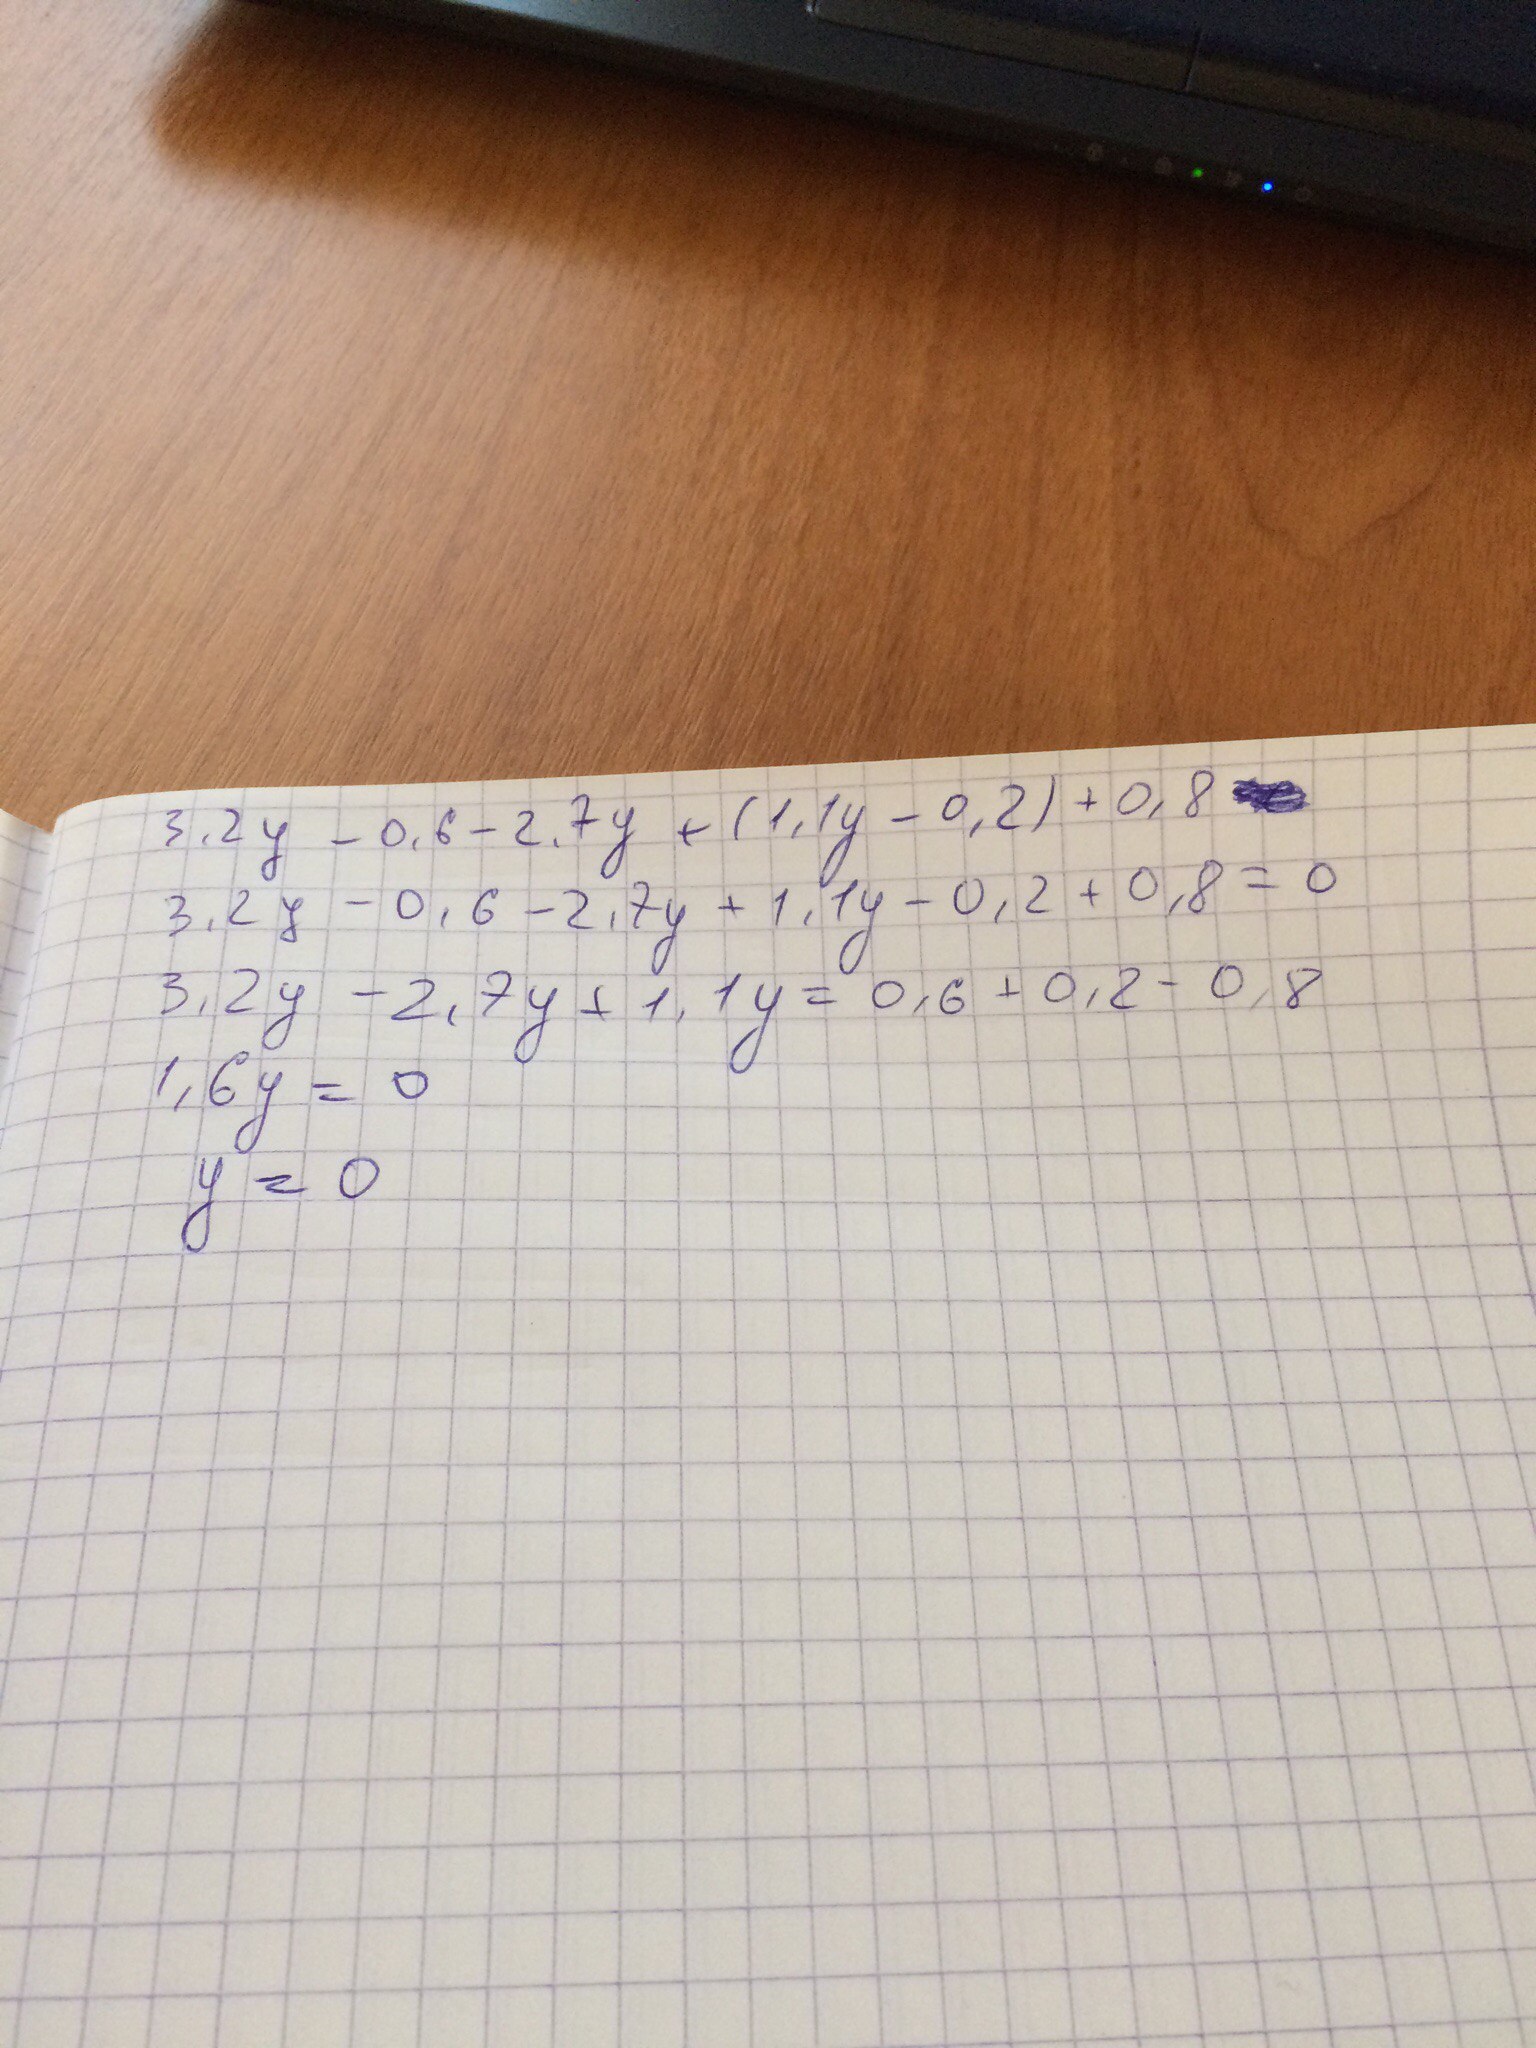 3,2y - 0,6 - 2,7y + (1,1y - 0,2) + 0,8
3,2y - 0,6 - 2,7y + 1,1y - 0,2 + 0,8 = 0
3,2y - 2,7y + 1,1y = 0,6 + 0,2 - 0,8
1,6y = 0
y = 0